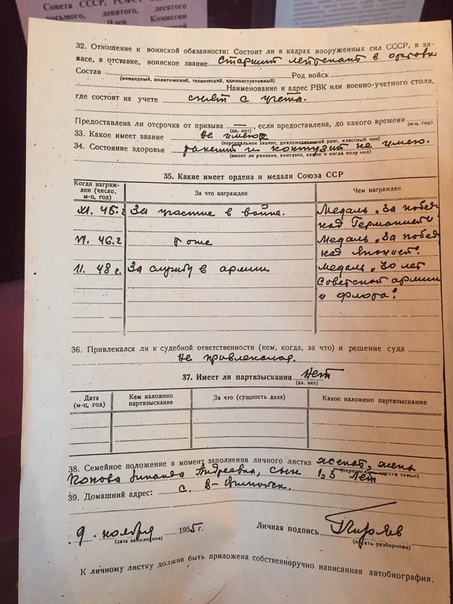 Совета СССР, РСФСР
восьмого, девятого, десятого
Член Комиссии
32. Отношение к воинской обязанности: Состоит ли в кадрах вооруженных сил СССР, в за-
пасе, в отставке, воинское звание Старший лейтенант в отставке
Состав Род войск
(командный, политический, технический, административный)
Наименование и адрес РВК или военно-учетного стола,
где состоит на учете снят с учета.
Предоставлена ли отсрочка от призыва — если предоставлена, до какого времени
(да, нет) (м-ц, год)
33. Какое имеет звание не имею
(персональное звание, дипломатический ранг, классный чин)
34. Состояние здоровья ранений и контузий не имею.
(имеет ли ранения, контузии, какие и когда получил)
35. Какие имеет ордена и медали Союза ССР
Когда награж-
ден (число,
м-ц, год)
За что награжден
Чем награжден
45. г За участие в войне. Медаль „За победу
над Германией"
46. г То же Медаль „За победу
над Японией".
II. 48 г. За службу в армии Медаль „30 лет
Советской армии
и флота".
36. Привлекался ли к судебной ответственности (кем, когда, за что) и решение суда
Не привлекался.
37. Имеет ли партвзыскания Нет
(да, нет)
Дата
(м-ц, год)
Кем наложено
партвзыскание
За что (сущность дела)
Какое наложено партвзыскание
38. Семейное положение в момент заполнения личного листка женат, жена
Андреевна, сын 1,5 лет
39. Домашний адрес: с.
9. ноября 1955 г. Личная подпись
(дата заполнения) (писать разборчиво)
К личному листку должна быть приложена собственноручно написанная автобиография.